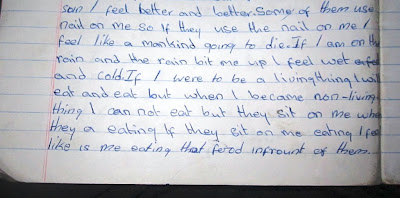 son I feel better and better. Some of them use
nail on me so If they use the nail on me I
feel like a mankind going to die. If I am on the
rain and the rain bit me up I feel wet
and cold. If I were to be a livingthing I will
eat and eat but when I became non-living
thing I can not eat but they sit on me
they a eating If they sit on me eating I feel
like is me eating that food infrount of them